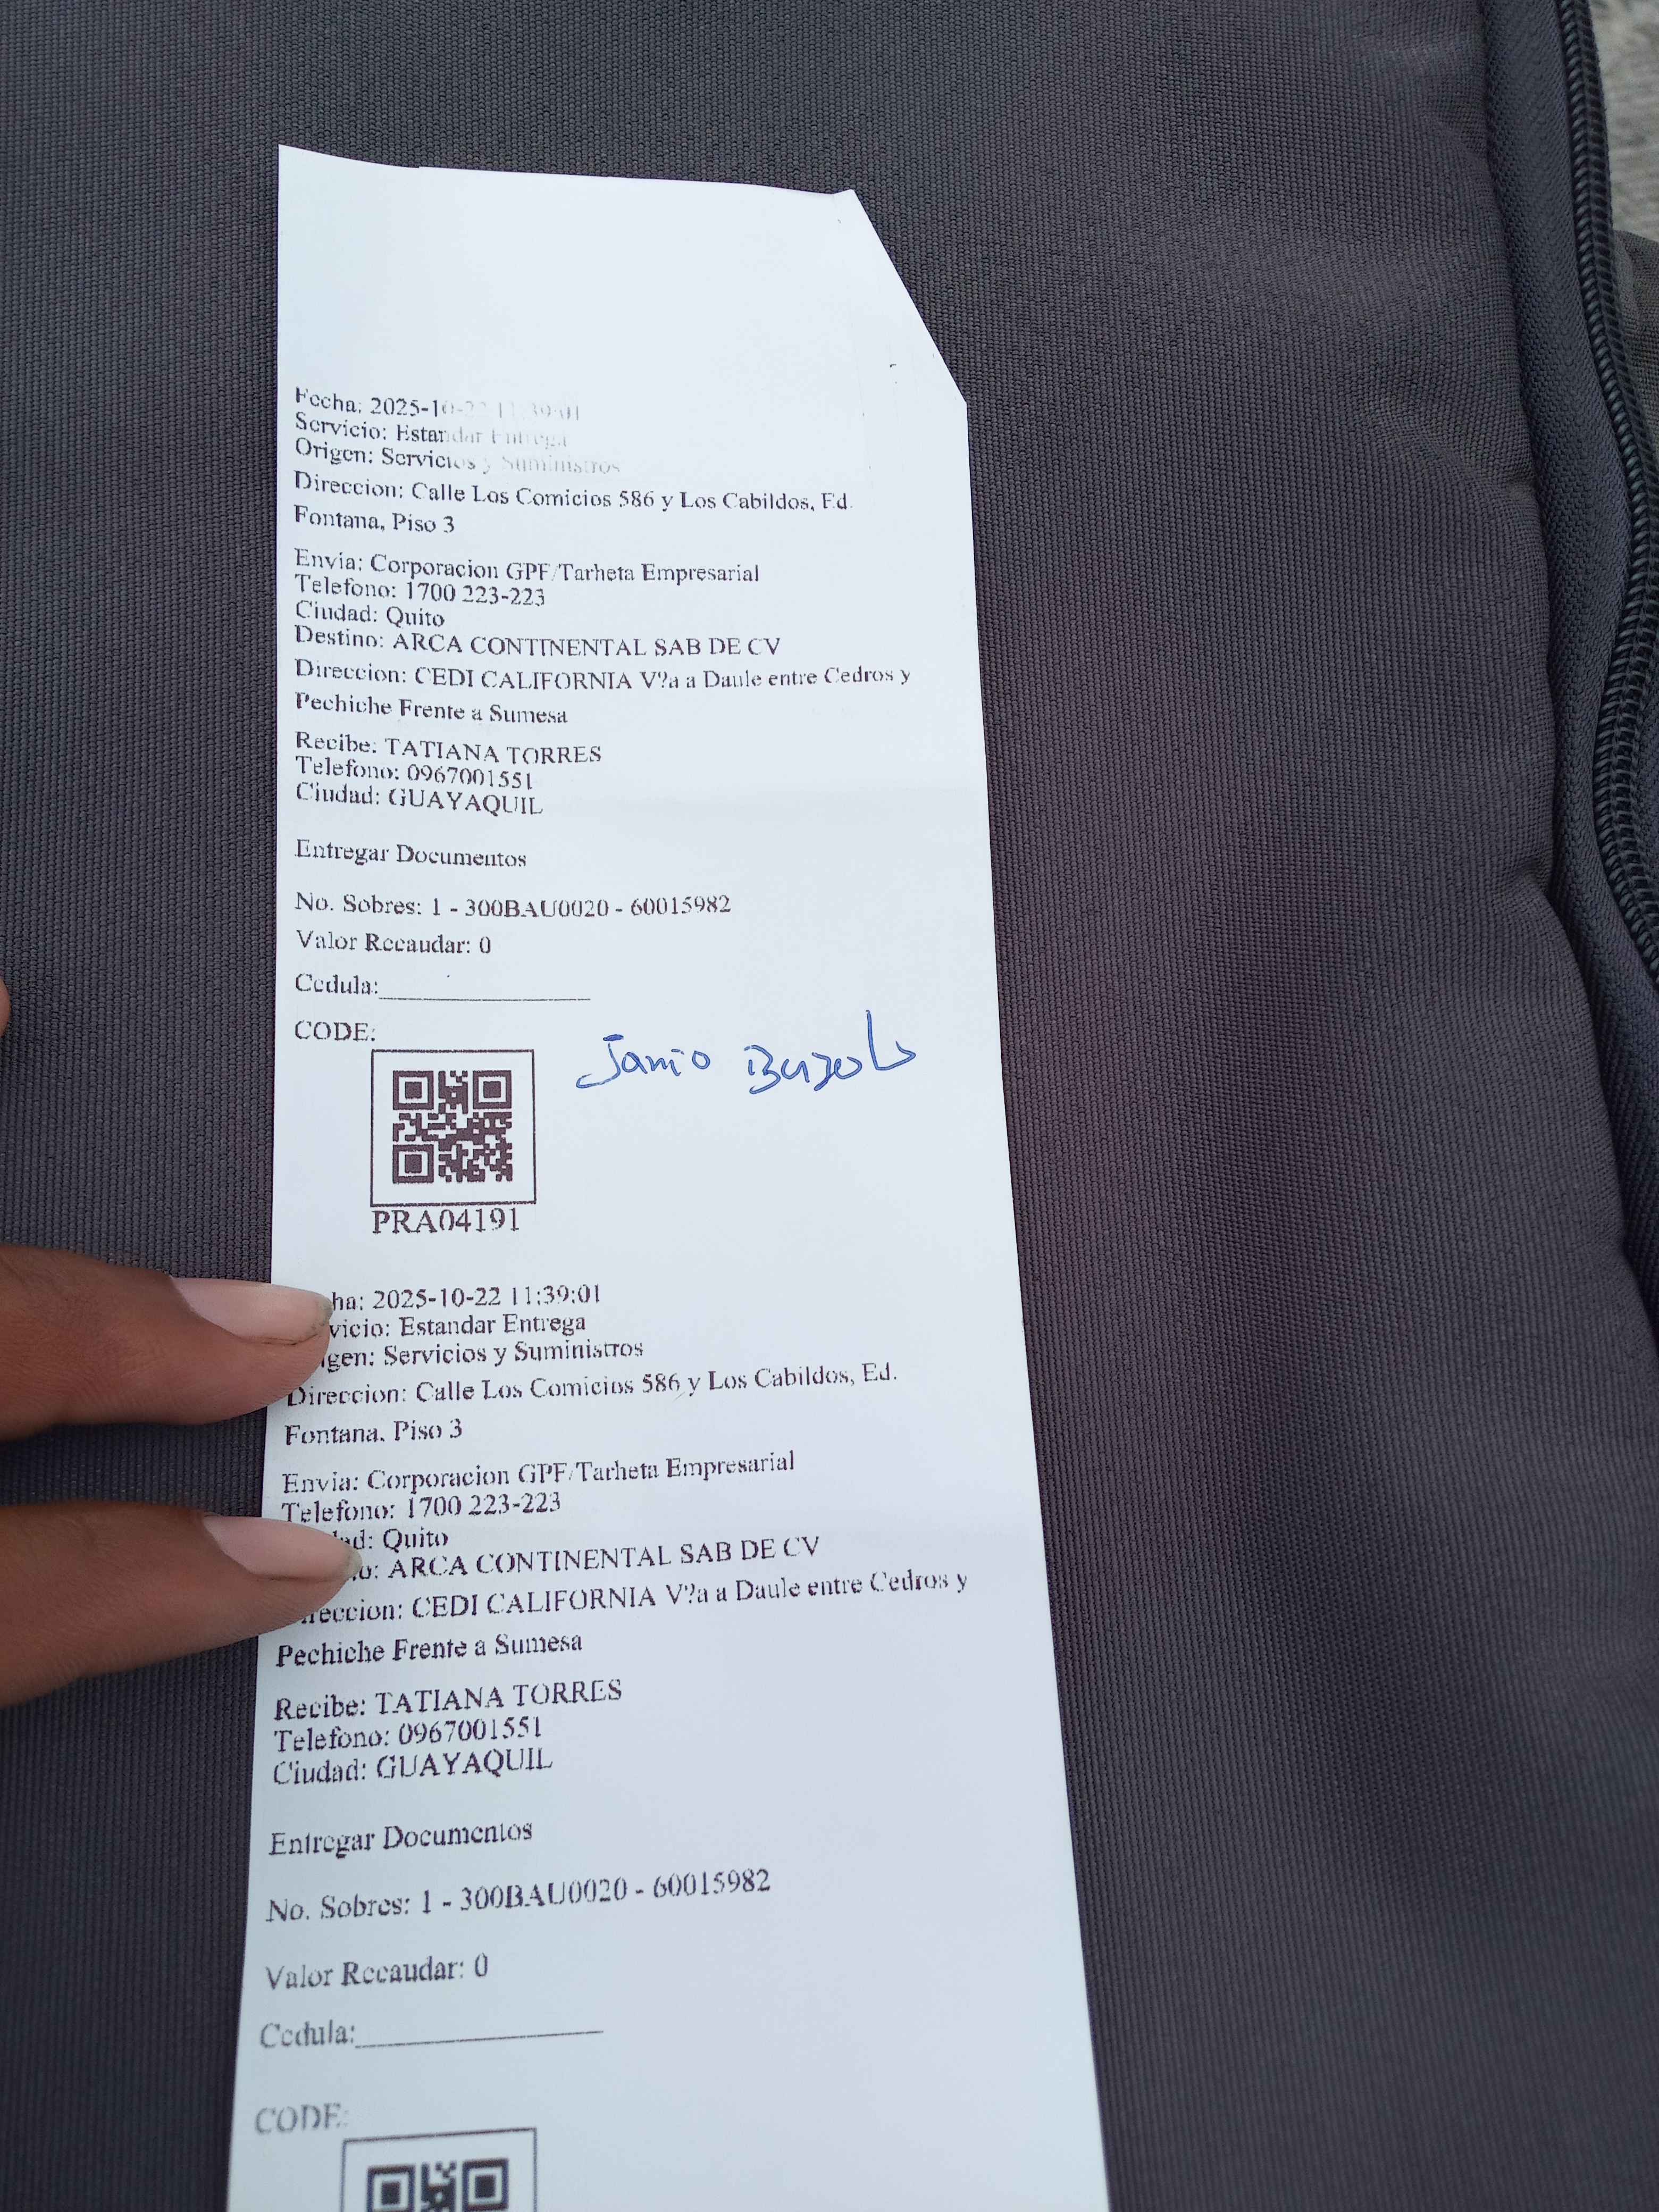 Fecha: 2025-10-22 11:39:01
Servicio: Estandar Entrega
Origen: Servicios y Suministros
Direccion: Calle Los Comicios 586 y Los Cabildos, Ed.
Fontana, Piso 3
Envia: Corporacion GPF/Tarheta Empresarial
Telefono: 1700 223-223
Ciudad: Quito
Destino: ARCA CONTINENTAL SAB DE CV
Direccion: CEDI CALIFORNIA V?a a Daule entre Cedros y
Pechiche Frente a Sumesa
Recibe: TATIANA TORRES
Telefono: 0967001551
Ciudad: GUAYAQUIL
Entregar Documentos
No. Sobres: 1 - 300BAU0020 - 60015982
Valor Recaudar: 0
Cedula:
CODE:
PRA04191
ha: 2025-10-22 11:39:01
vicio: Estandar Entrega
igen: Servicios y Suministros
Direccion: Calle Los Comicios 586 y Los Cabildos, Ed.
Fontana, Piso 3
Envia: Corporacion GPF/Tarheta Empresarial
Telefono: 1700 223-223
ad: Quito
o: ARCA CONTINENTAL SAB DE CV
reccion: CEDI CALIFORNIA V?a a Daule entre Cedros y
Pechiche Frente a Sumesa
Recibe: TATIANA TORRES
Telefono: 0967001551
Ciudad: GUAYAQUIL
Entregar Documentos
No. Sobres: 1 - 300BAU0020 - 60015982
Valor Recaudar: 0
Cedula:
CODE: